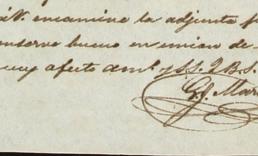 encamine la adjunta
conserve bueno en union de
muy afecto am.º y S. S. Q. B. S.
G. Mar